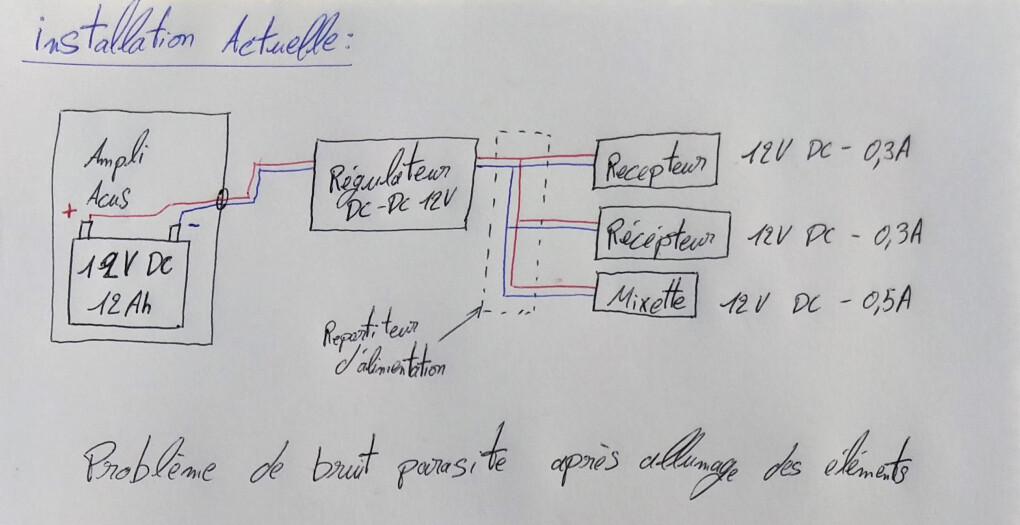 installation Actuelle:
Ampli
Acus
+
-
12V DC
12Ah
Régulateur
DC-DC 12V
Recepteur
12V DC - 0,3A
Récépteur
12V DC - 0,3A
Mixette
12V DC - 0,5A
Repartiteur
d'alimentation
Problème de bruit parasite après allumage des éléments